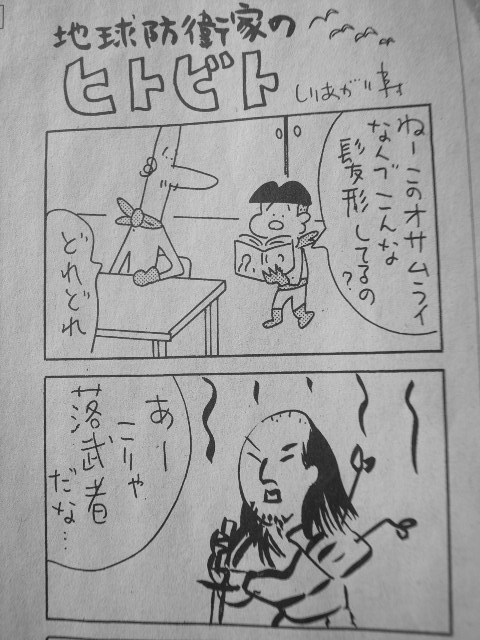 地球防衛家の
ヒトビト
しりあがり寿
ねーこのオサムライ
なんでこんな
髪形してるの
?
どれどれ
あー
こりゃ
落武者
だな…